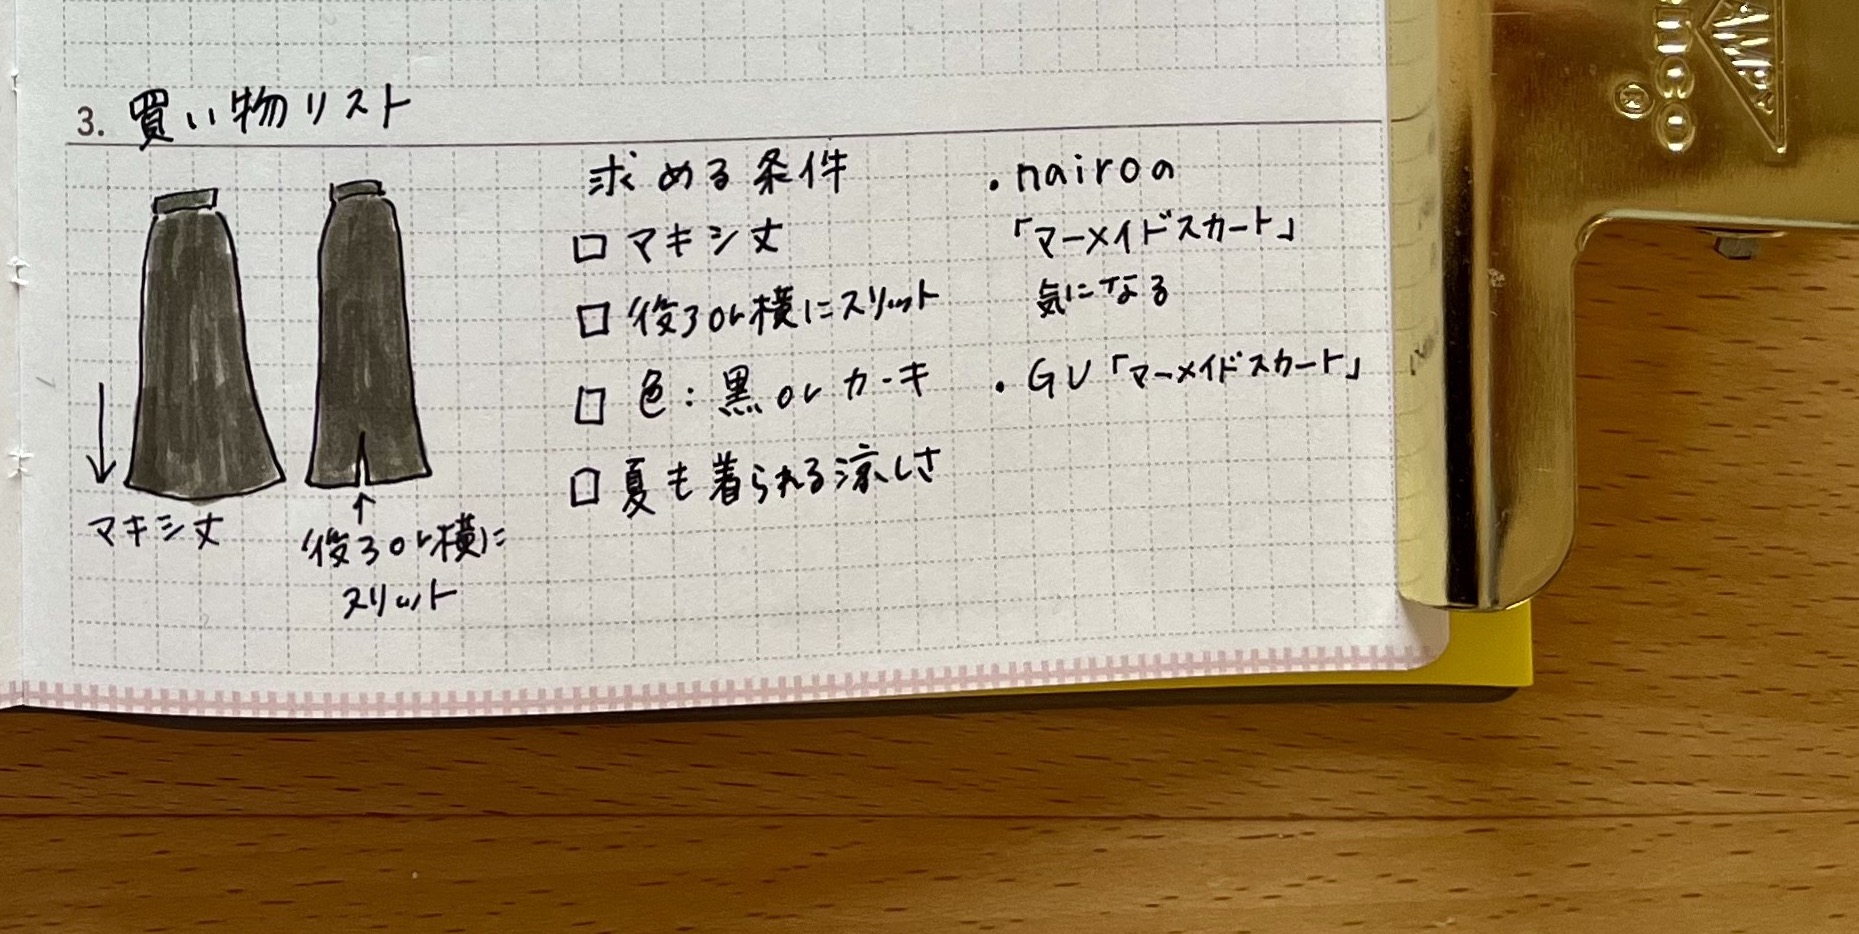 3. 買い物リスト
マキシ丈
後ろor横に
スリット
求める条件
□ マキシ丈
□ 後ろor横にスリット
□ 色：黒orカーキ
□ 夏も着られる涼しさ
・nairoの
「マーメイドスカート」
気になる
・GU「マーメイドスカート」